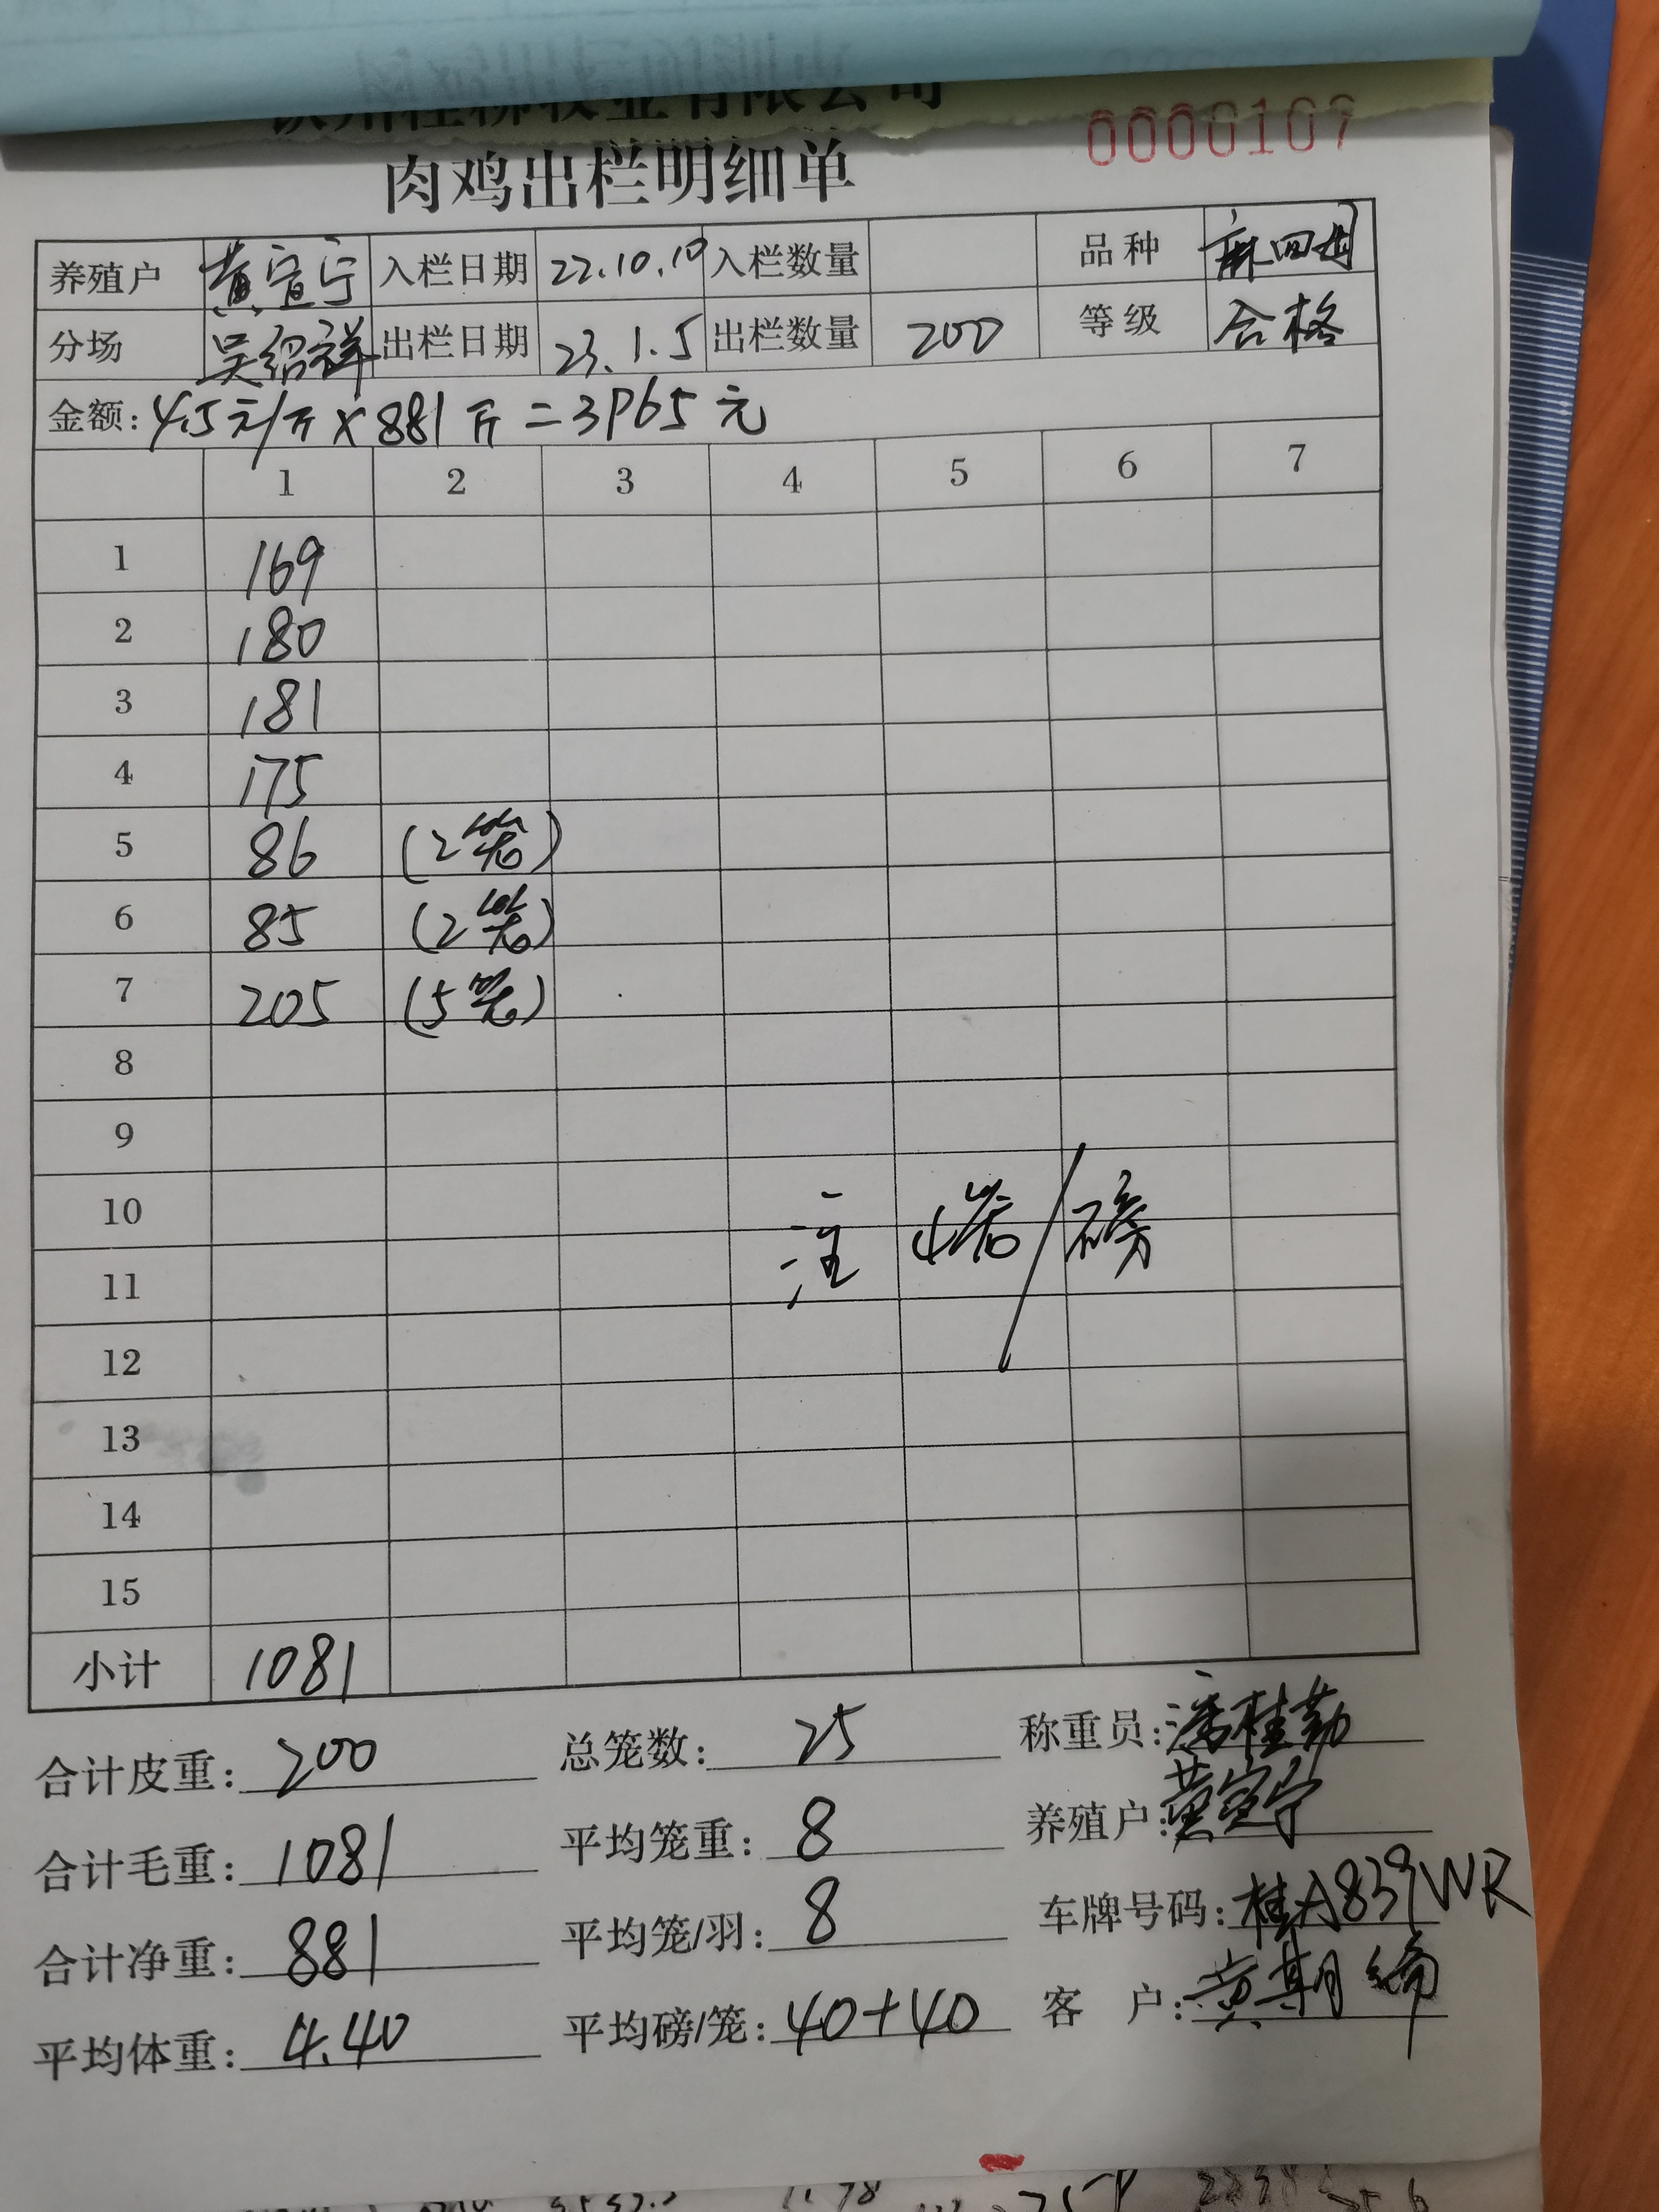 钦州桂柳牧业有限公司
0000107
肉鸡出栏明细单
养殖户 黄宣宁 入栏日期 22.10.10 入栏数量 品种 麻四母
分场 吴绍祥 出栏日期 23.1.5 出栏数量 200 等级 合格
金额: 4.5元/斤×881斤=3965元
1 2 3 4 5 6 7
1 169
2 180
3 181
4 175
5 86 (2笼)
6 85 (2笼)
7 205 (5笼)
8
9
10
注 4笼/磅
11
12
13
14
15
小计 1081
合计皮重: 200 总笼数: 25 称重员: 潘桂勤
合计毛重: 1081 平均笼重: 8 养殖户: 黄宣宁
合计净重: 881 平均笼/羽: 8 车牌号码: 桂A839WR
平均体重: 4.40 平均磅/笼: 40+40 客户: 黄期